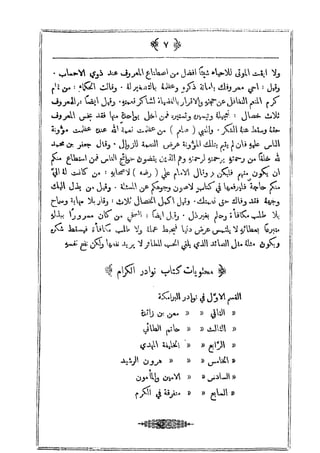 ﴿ ٧ ﴾
ولا ابقت الموتى للاحياء شيئًا افضل من اصطناع المعروف عند ذوي الاحساب ۰
وقيل : احيِ معروفك باماتة ذكره وعظمه بالتصغير له ۰ وقالت الحكماء : من تمام
كرم المنعم التغافل عن حجته والاقرار بالفضيلة لشاكر نعمته ۰ وقيل ايضًا للمعروف
ثلاث خصال : تعجيله وتيسيره وتستيره فمن اخل بواحدة منها فقد بخس المعروف
حقه وسقط عنه الشكر ۰ والنبي ( صلعم ) من عظمت نعمة الله عنده عظمت مؤونة
الناس عليه فان لم يقم بتلك المؤونة عرض النعمة للزوال ۰ وقال جعفر بن محمد
لله خلقًا من رحمته برحمته لرحمته وهم الذين يقضون حوائج الناس فمن استطاع منكم
ان يكون منهم فليكن ۰ وقال الامام علي ( رضه ) لاصحابه : من كانت له الي
منكم حاجة فليرفعها في كتاب لاصون وجوهكم عن المسئلة ۰ وقيل من بذل اليك
وجهه فقد وفاك حق نعمتك ۰ وقيل اكمل الخصال ثلاث : وقار بلا مهابة وسماح
بلا طلب مكافأة وحلم بغير ذل ۰ وقيل ايضًا : السخي من كان مسرورًا ببذله
متبرعًا بعطائه لا يلتمس عرض دنيا فيحبط عمله ولا طلب مكافأة فيسقط شكره
ويكون مثله مثل الصائد الذي يلقي الحب للطائر لا يريد نفعها ولكن نفع نفسه
﴿ محتويات كتاب نوادر الكرام ﴾
القسم الاول في نوادر البرامكة
« الثاني « « معن بن زائدة
« الثالث « « حاتم الطائي
« الرابع « « الخليفة المهدي
« الخامس « « هرون الرشيد
« السادس « « الامين والمأمون
« السابع « « متفرقة في الكرم